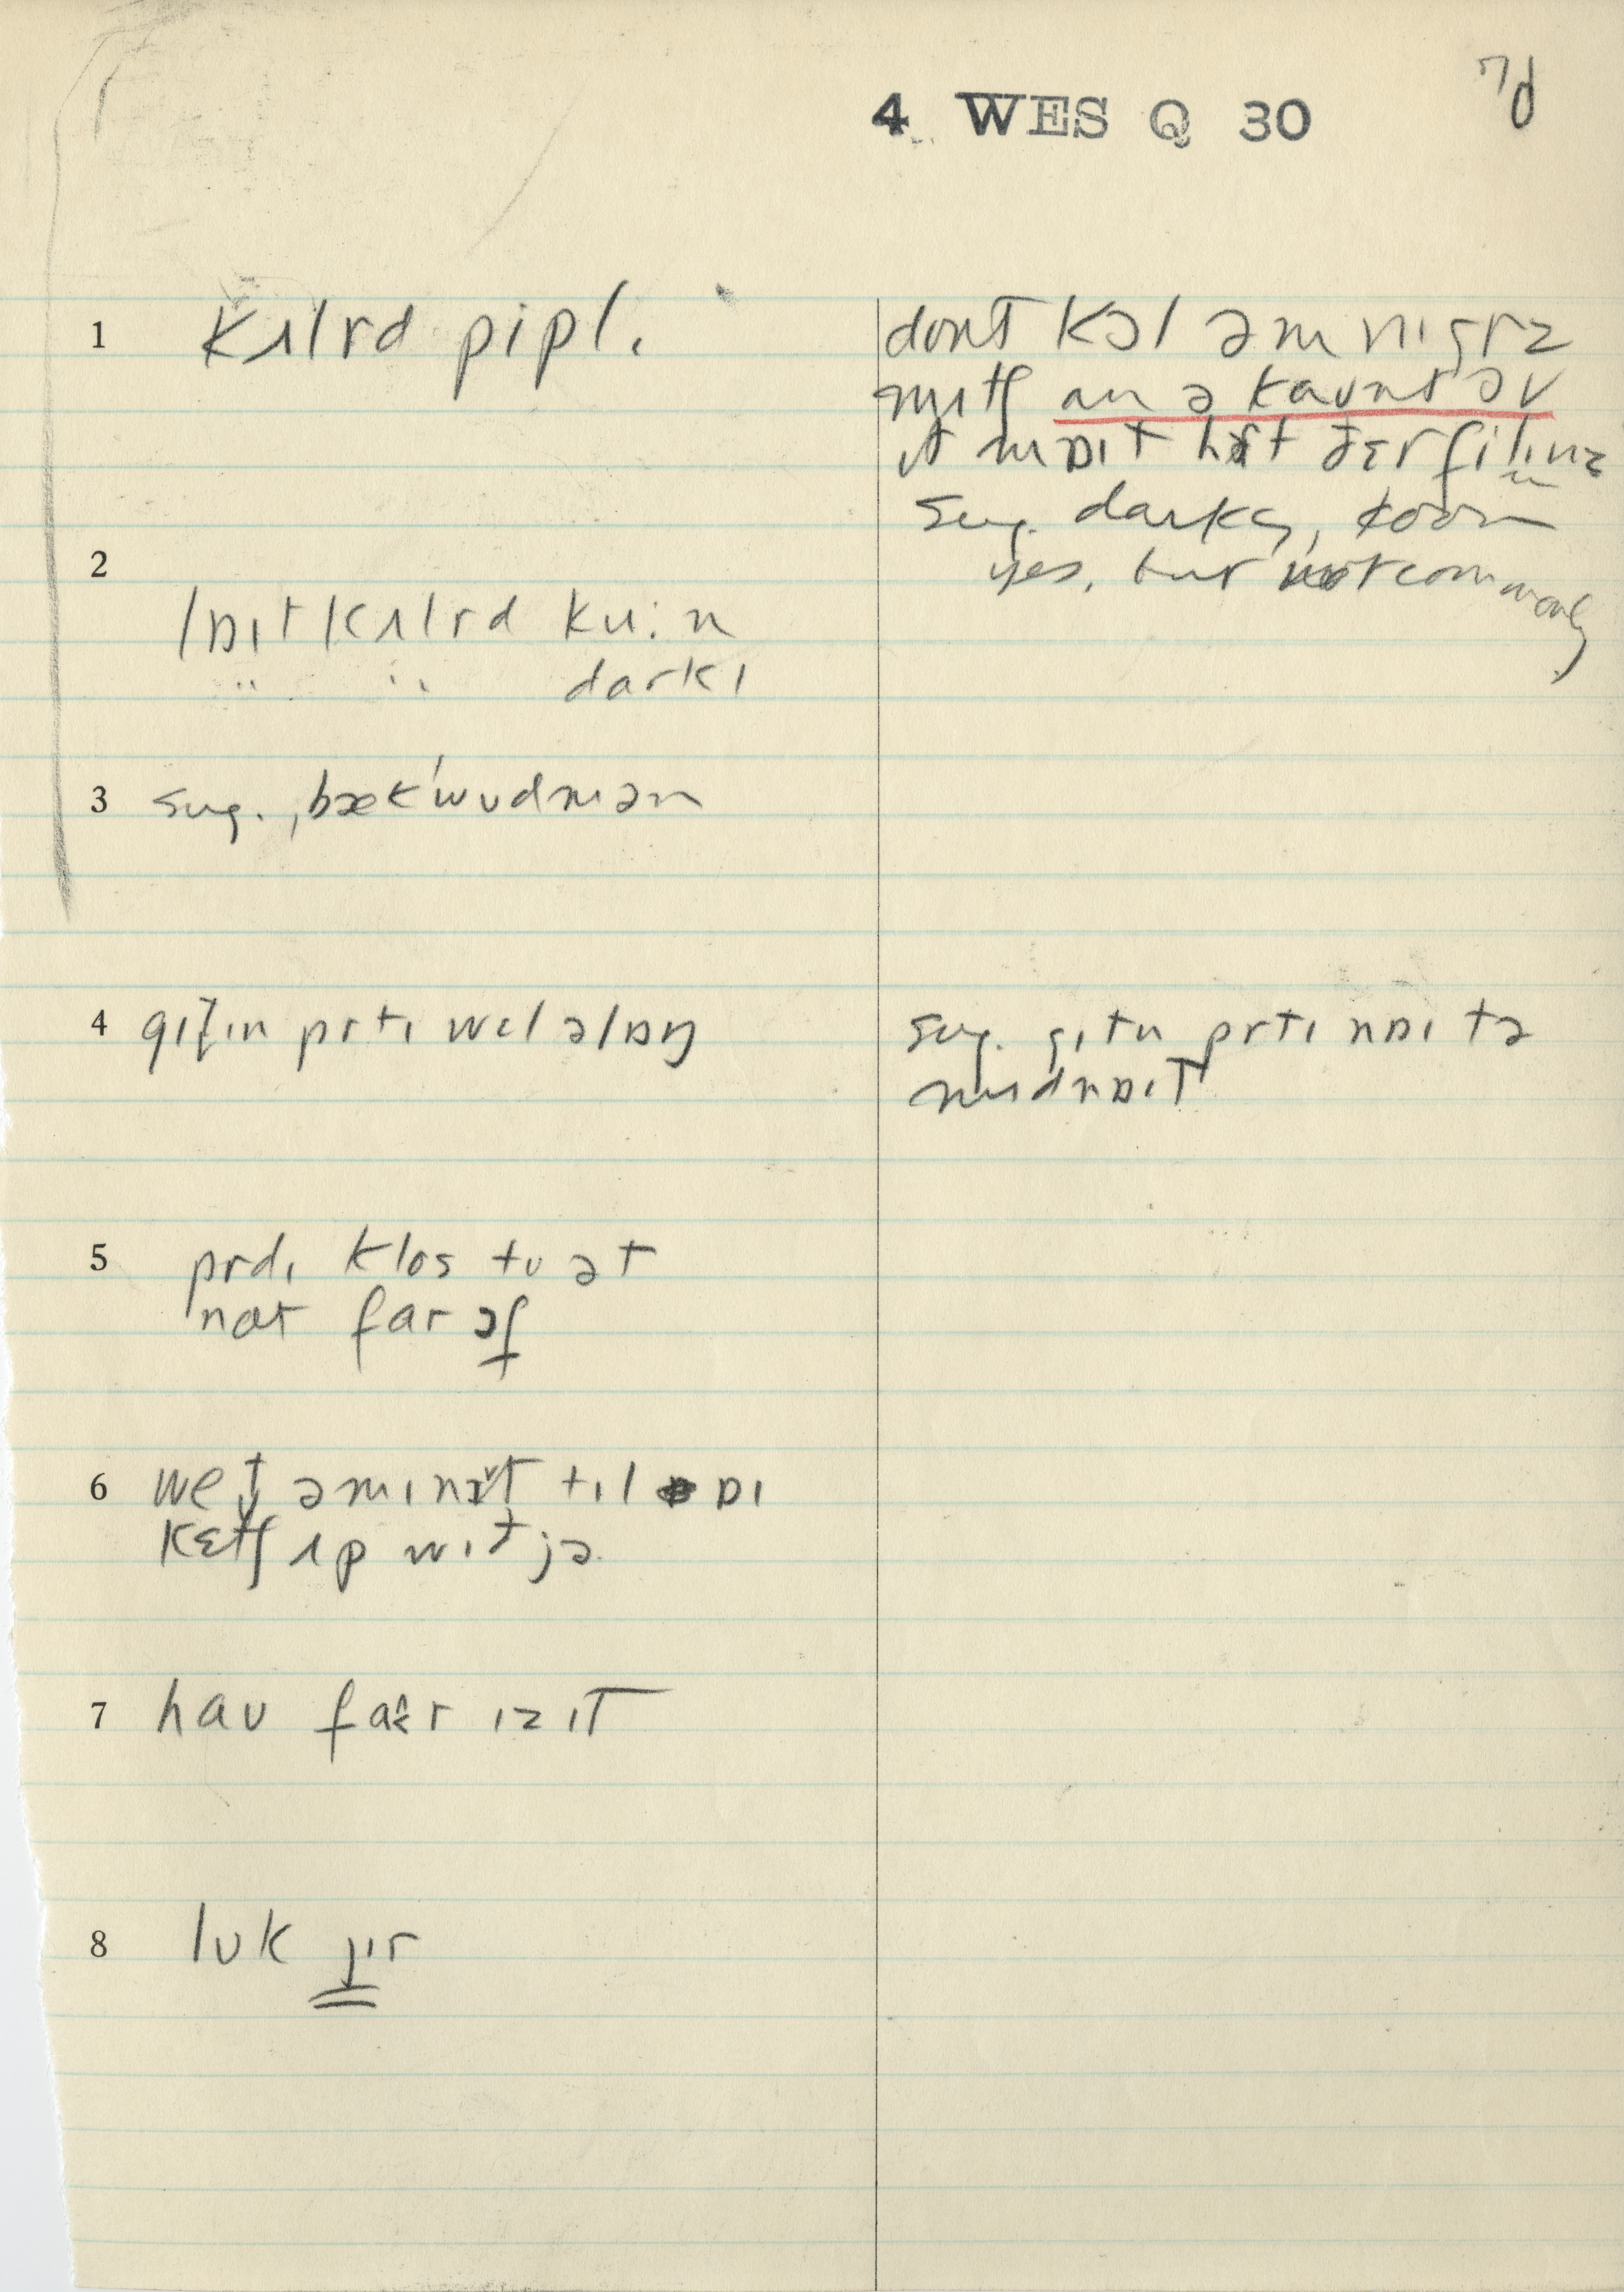 4 WES Q 30
1 kʌlrd pipl.
dont kɔl əm nɪgrz
mʌtʃ an ə kaunt əv
ɪt mɒɪt hɜt ðɛr filɪnz
sug. darky, coon
yes, but not commonly
2
lɒɪt kʌlrd ku:n
" " darkɪ
3 sug. ˌbækˈwudmən
4 gɪt̬ɪn prtɪ wɛl əlɒŋ
sug. gɪtn prtɪ nɒɪ tə
mɪdnɒɪt
5 prdɪ klos tu ət
nat far ɔf
6 wet̬ əmɪnɪt tɪl ɒɪ
kɛtʃ ʌp wɪt jə
7 hau far ɪz ɪt
8 luk jɪr